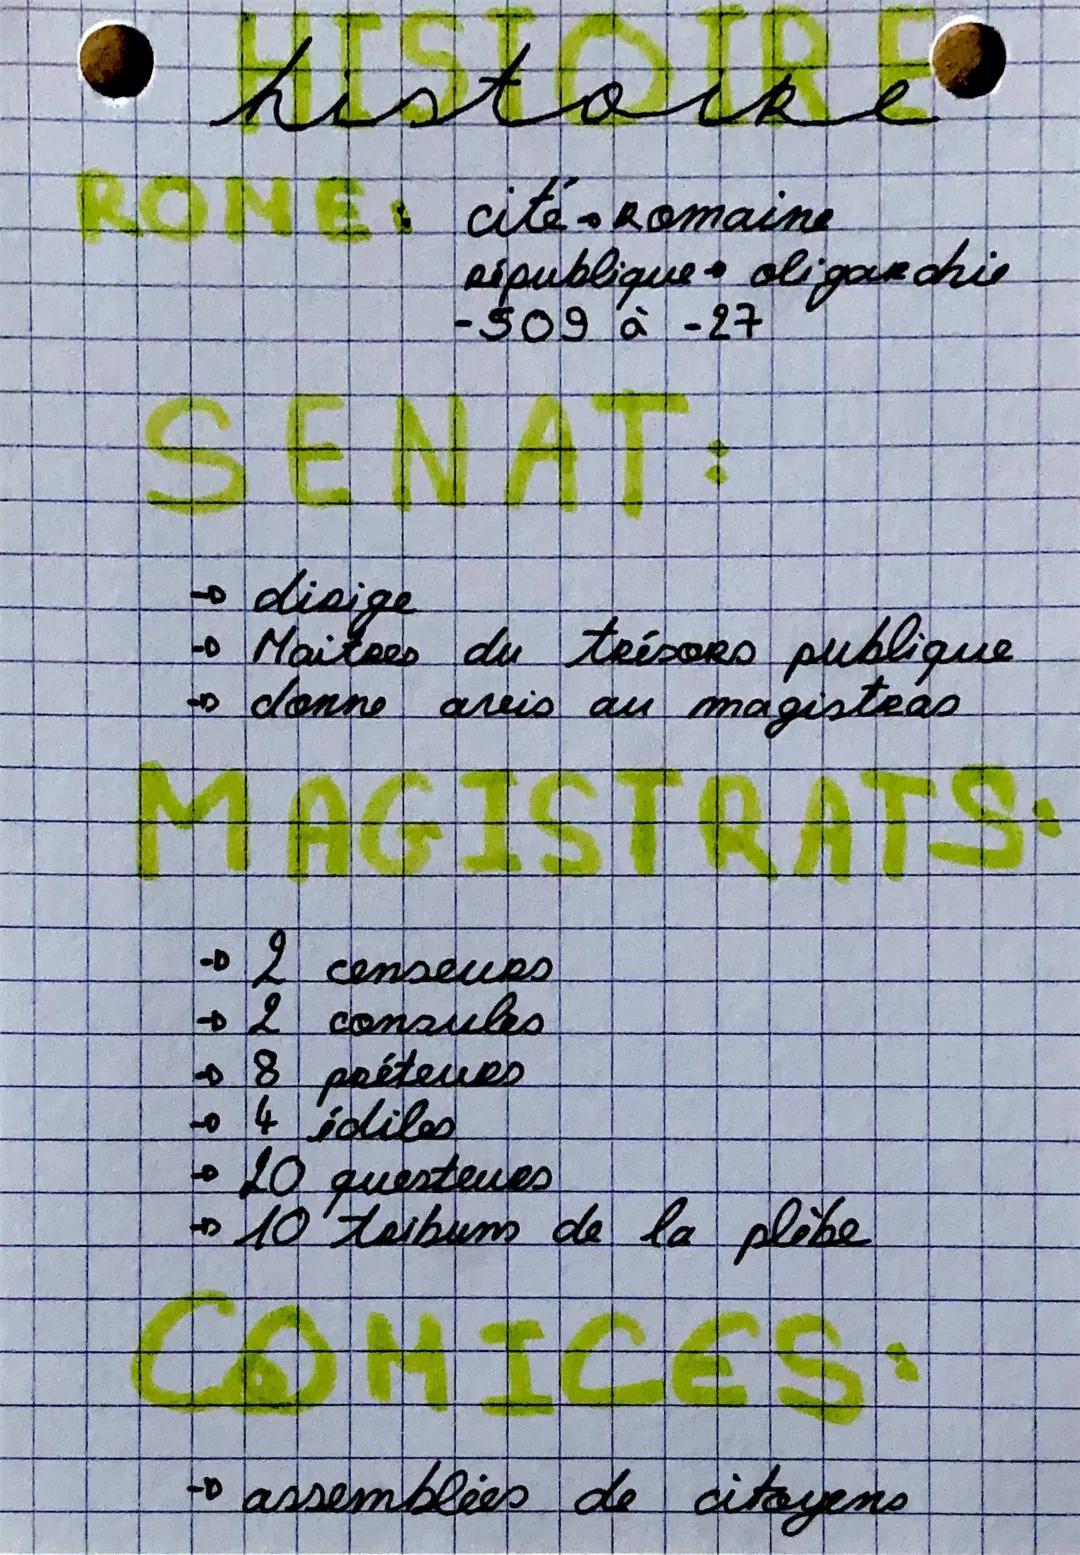 HISTOIRE
histoire
ROME: cité → Romaine
république → oligarchie
-509 à -27
SENAT:
→ dirige
→ Maitres du trésors publique
→ donne avis au magistras
MAGISTRATS:
→ 2 censeurs
→ 2 consules
→ 8 préteurs
→ 4 édiles
→ 20 questeurs
→ 10 tribuns de la plèbe
COMICES:
→ assemblées de citoyens